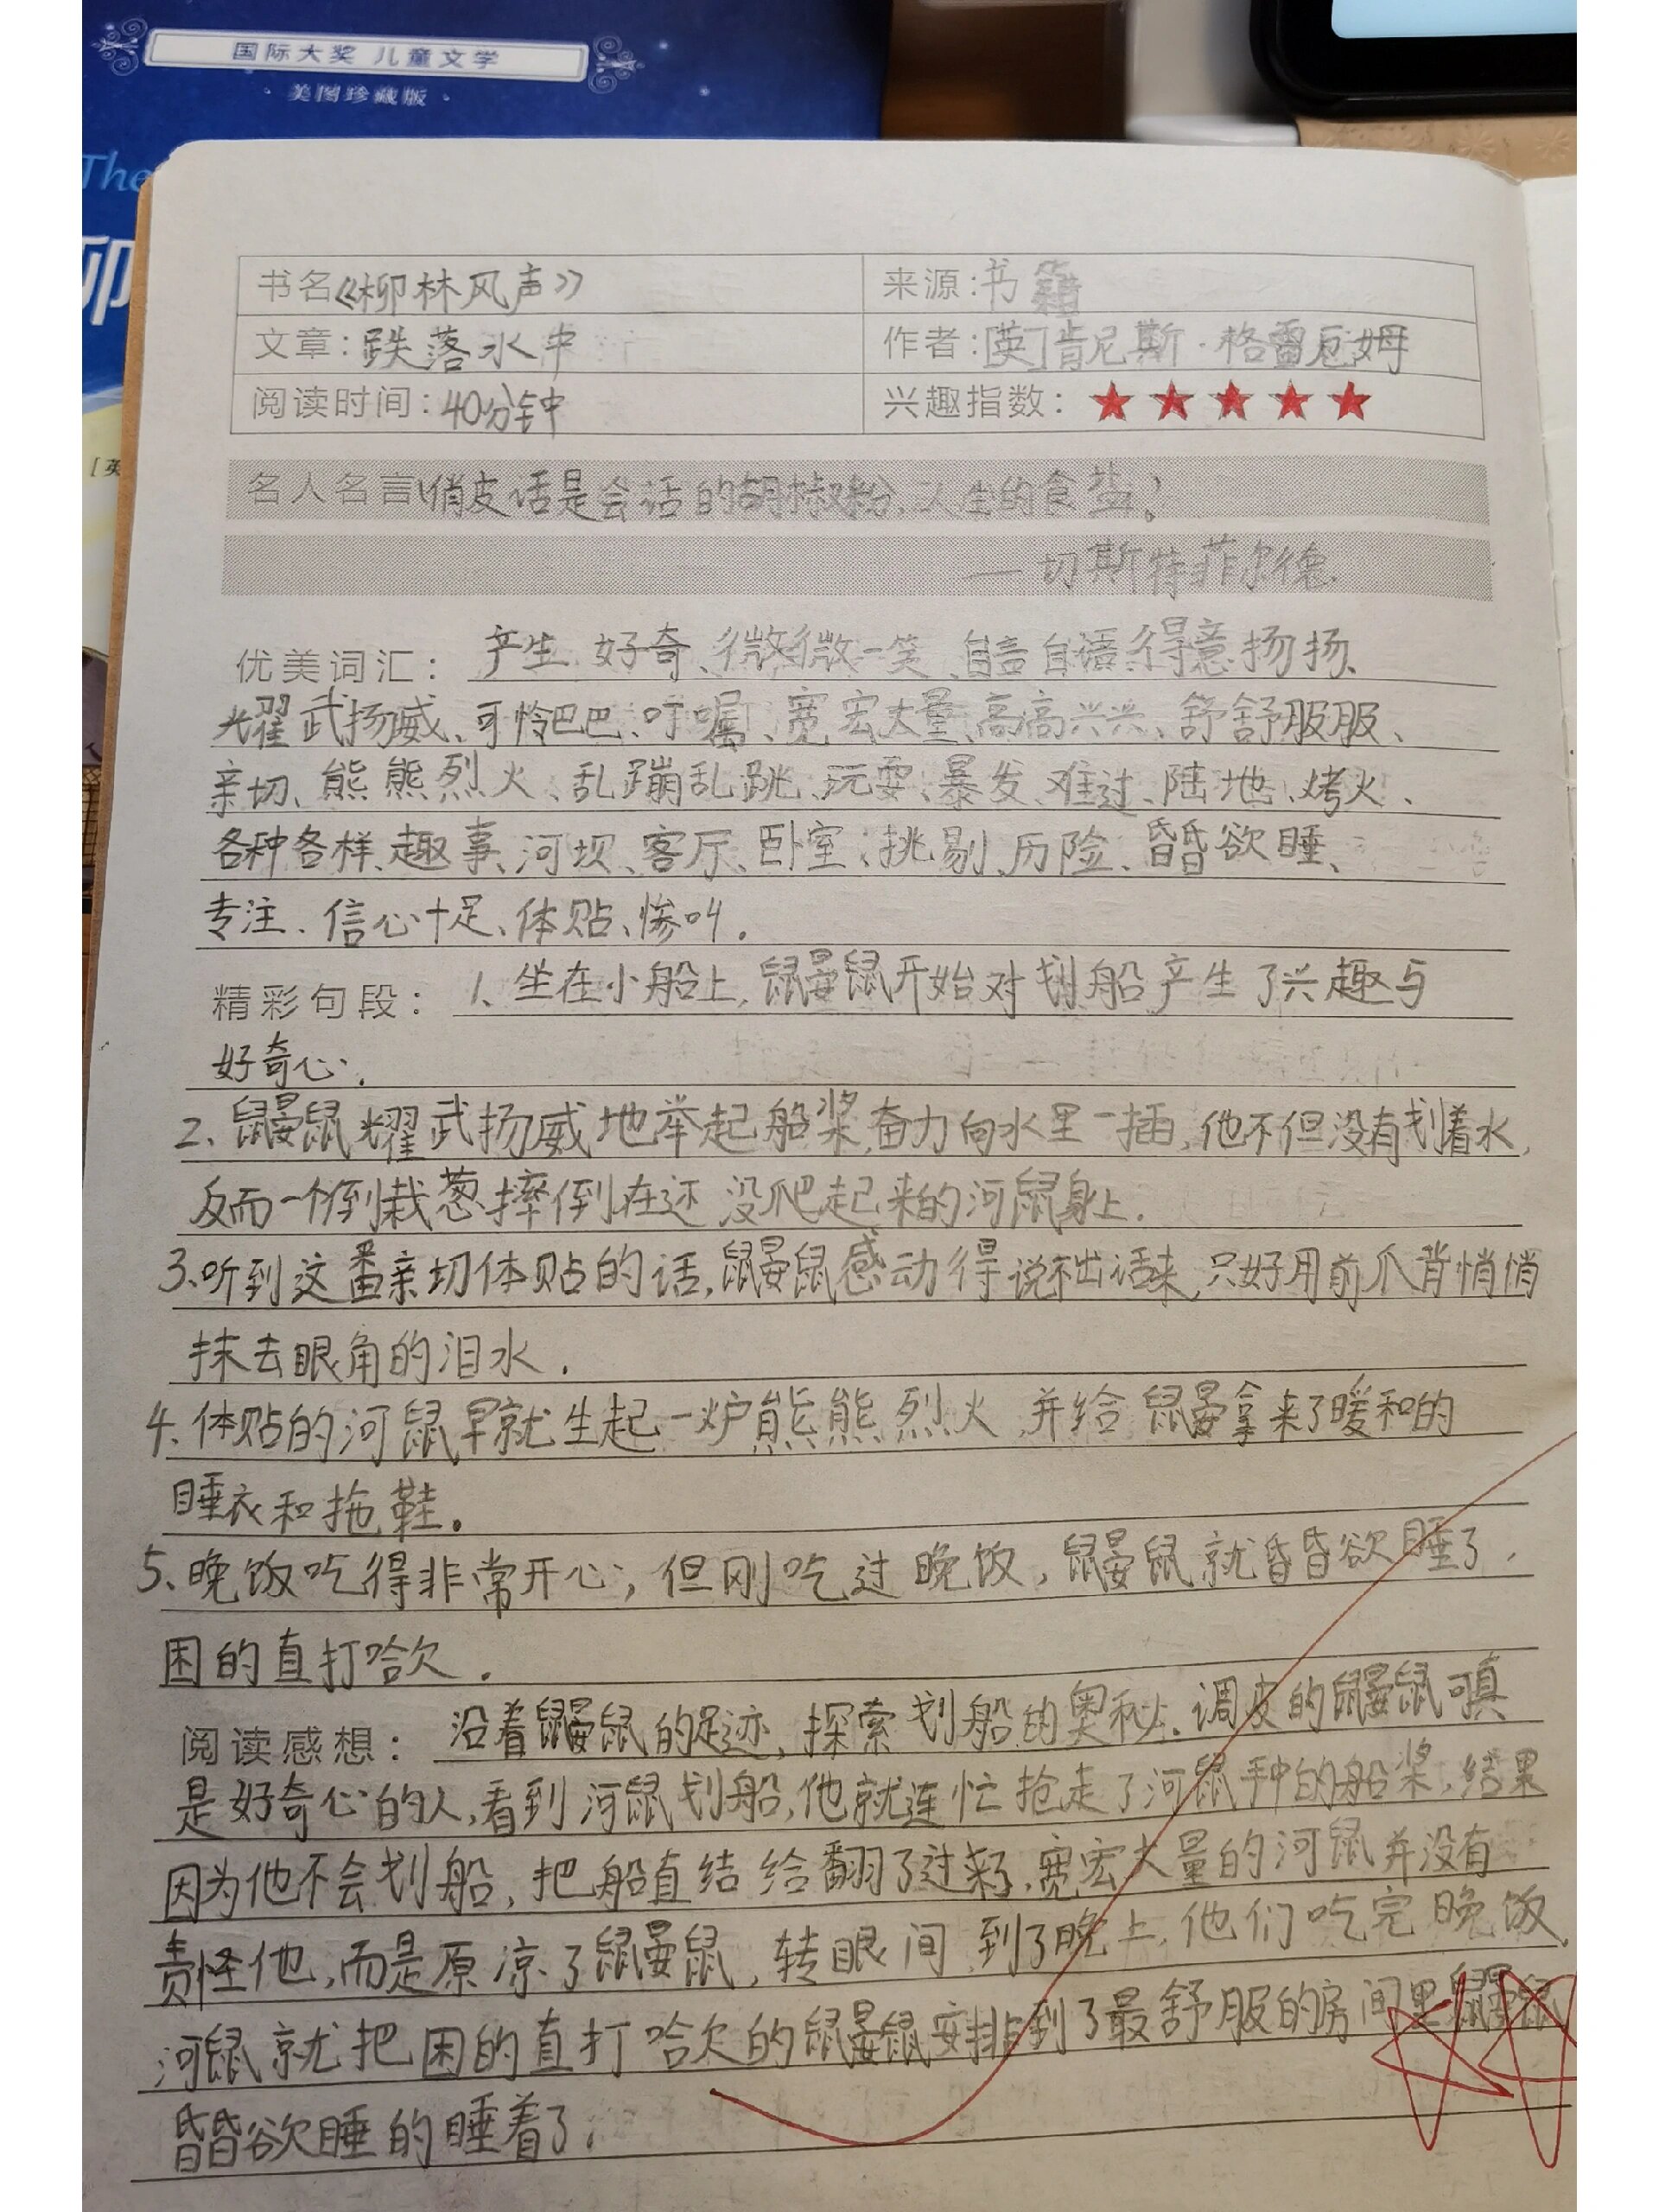 国际大奖 儿童文学
·美图珍藏版·
The
柳
[英
书名《柳林风声》
来源:书籍
文章:跌落水中
作者:[英]肯尼斯·格雷厄姆
阅读时间:40分钟
兴趣指数:★★★★★
名人名言:俏皮话是会话的胡椒粉,人生的食盐。
——切斯特菲尔德.
优美词汇: 产生、好奇、微微一笑、自言自语、得意扬扬、
耀武扬威、可怜巴巴、叮嘱、宽宏大量、高高兴兴、舒舒服服、
亲切、熊熊烈火、乱蹦乱跳、玩耍、暴发、难过、陆地、烤火、
各种各样、趣事、河坝、客厅、卧室、挑剔、历险、昏昏欲睡、
专注、信心十足、体贴、惨叫.
精彩句段: 1、坐在小船上,鼹鼠开始对划船产生了兴趣与
好奇心.
2、鼹鼠耀武扬威地举起船桨,奋力向水里一插,他不但没有划着水,
反而一个倒栽葱摔倒在还没爬起来的河鼠身上.
3、听到这番亲切体贴的话,鼹鼠感动得说不出话来,只好用前爪背悄悄
抹去眼角的泪水.
4、体贴的河鼠早就生起一炉熊熊烈火,并给鼹拿来了暖和的
睡衣和拖鞋。
5、晚饭吃得非常开心;但刚吃过晚饭,鼹鼠就昏昏欲睡了,
困的直打哈欠.
阅读感想: 沿着鼹鼠的足迹,探索划船的奥秘.调皮的鼹鼠可真
是好奇心的人,看到河鼠划船,他就连忙抢走了河鼠手中的船桨,结果
因为他不会划船,把船直结给翻了过来了,宽宏大量的河鼠并没有
责怪他,而是原凉了鼹鼠,转眼间到了晚上,他们吃完晚饭,
河鼠就把困的直打哈欠的鼹鼠安排到了最舒服的房间里鼹鼠
昏昏欲睡的睡着了.